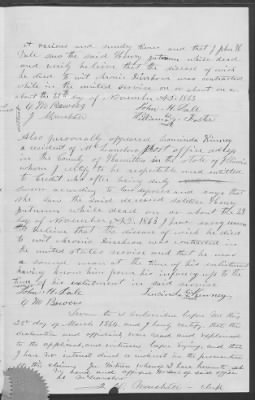 at various and sundry times and that I John H
Tall saw the said Henry putnam while dead
and verily believe that the disease of which
he died to wit chronic Diarhoea was contracted
while in the united service on or about on or
about the 23rd day of November A.D. 1863
G M Bowers John H. Tall
J
Also personally appeared Lucinda Kinney
a resident of Mt post office address
in the County of Hamilton in the state of Illinois
whom I certify to be respectable and entitled
to credit who after being duly
sworn according to law deposes and says that
she saw the said deceased soldier Henry
putnam while dead on or about the 23
day of November A.D. 1863 I have every reason
to believe that the disease of which he died
to wit chronic Diarrhoea was contracted in
the united states service and that he was
a sound man at the time of his enlistment
having known him from his infancy up to the
time of his enlistment in said service
John H. Tall Lucinda Kinney
G M Bowers
Sworn to & subscribed before me this
day of March 1864 and I hereby certify that the
declaration and affidavit were read and explained
to the applicant and witnesses before signing and that
I have no interest direct or indirect in the prosecution
of this claim In Witness whereof I have hereunto set
my hand and affixed my seal of office
at
J clerk